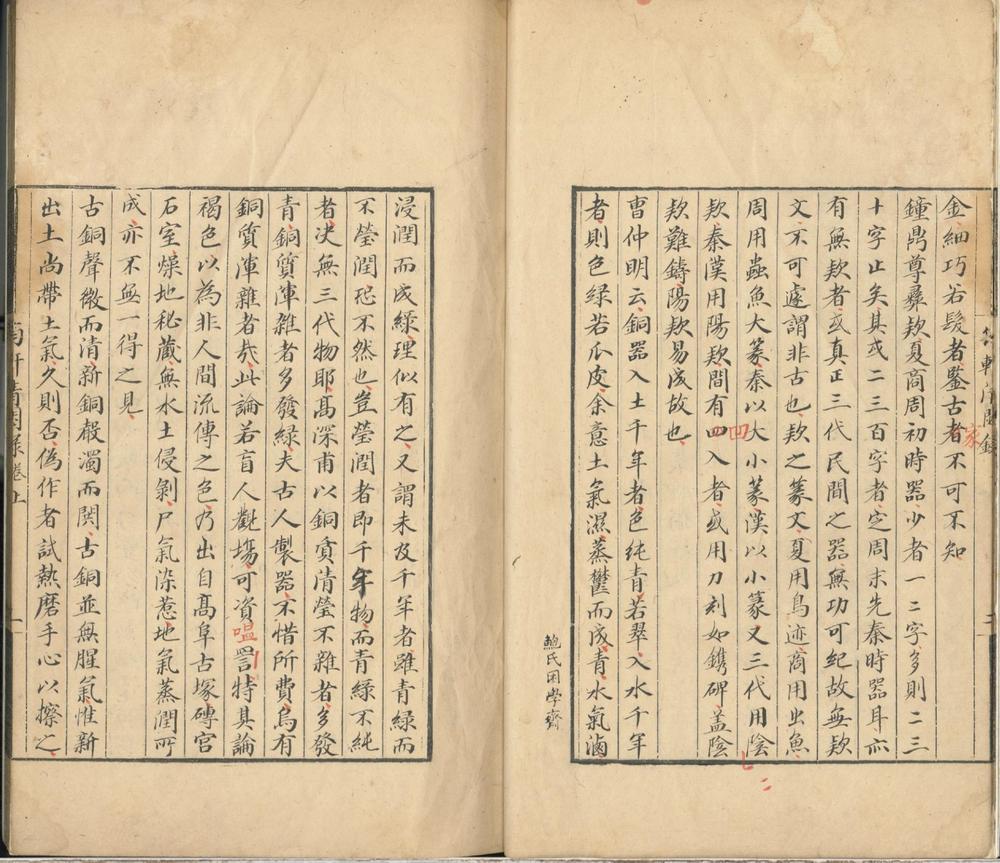 金細巧若髮者鑒古者不可不知
家
鐘鼎尊彝欵夏商周初時器少者一二字多則二三
十字止矣其或二三百字者定周末先秦時器耳亦
有無欵者或真正三代民間之器無功可紀故無欵
文不可遽謂非古也欵之篆文夏用鳥迹商用虫魚
周用蟲魚大篆秦以大小篆漢以小篆又三代用陰
欵秦漢用陽欵間有四入者或用刀刻如鐫碑蓋陰
凹
欵難鑄陽欵易成故也
曹仲明云銅器入土千年者色純青若翠入水千年
者則色緑若瓜皮余意土氣濕蒸鬱而成青水氣滷
鮑氏困學齋
浸潤而成緑理似有之又謂未及千年者雖青緑而
不瑩潤恐不然也豈瑩潤者即千年物而青緑不純
者决無三代物耶高深甫以銅質清瑩不雜者多發
青銅質渾雜者多發緑夫古人製器不惜所費烏有
銅質渾雜者㢤此論若盲人觀塲可資罰特其論
嗢
褐色以為非人間流傳之色乃出自髙阜古塚磚宫
石室燥地秘藏無水土侵剝尸氣染惹地氣蒸潤所
成亦不無一得之見
古銅聲微而清新銅聲濁而閧古銅並無腥氣惟新
出土尚帶土氣久則否偽作者試熱磨手心以擦之